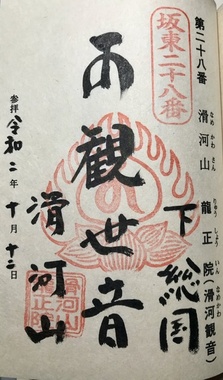 坂東二十八番
第二十八番 滑河山 龍正院(滑河観音)
なめ かわ さん りゅう しょう いん なめかわ
下総国
観世音
滑河山
参拝 令和二年十月十二日